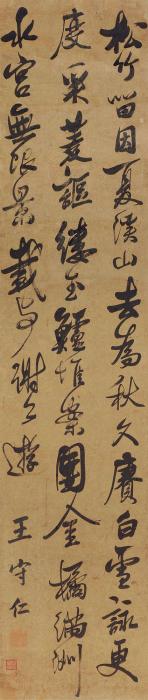 松竹留因夏溪山去為秋久賡白雪詠更
度采菱謳縷玉鱸堆案團金橘滿洲
水宮無限景載與謝公遊
王守仁